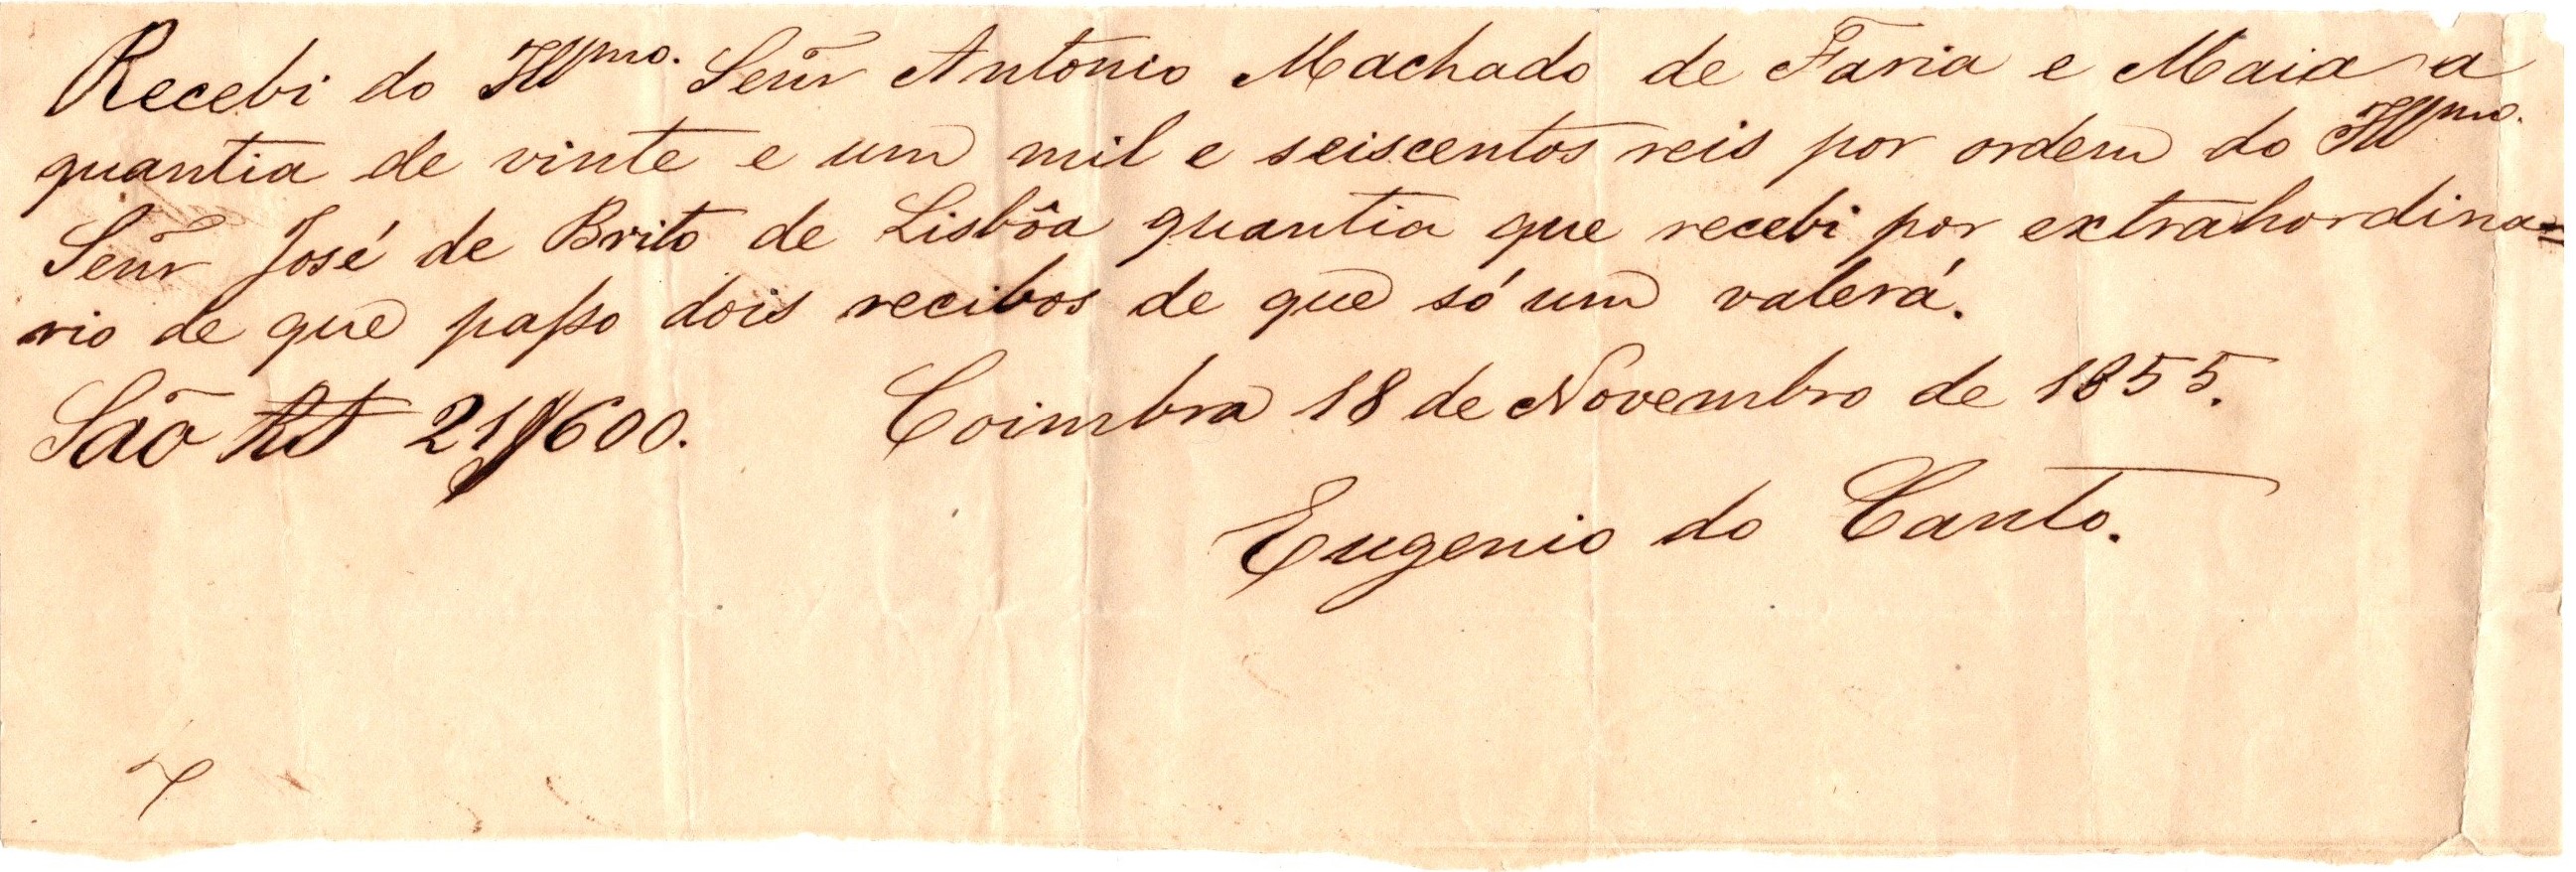 Recebi do Illmo. Senr Antonio Machado de Faria e Maia a
quantia de vinte e um mil e seiscentos reis por ordem do Illmo.
Senr José de Brito de Lisbôa quantia que recebi por extrahordina=
rio de que passo dois recibos de que só um valerá.
São Rs 21$600. Coimbra 18 de Novembro de 1855.
Eugenio do Canto.